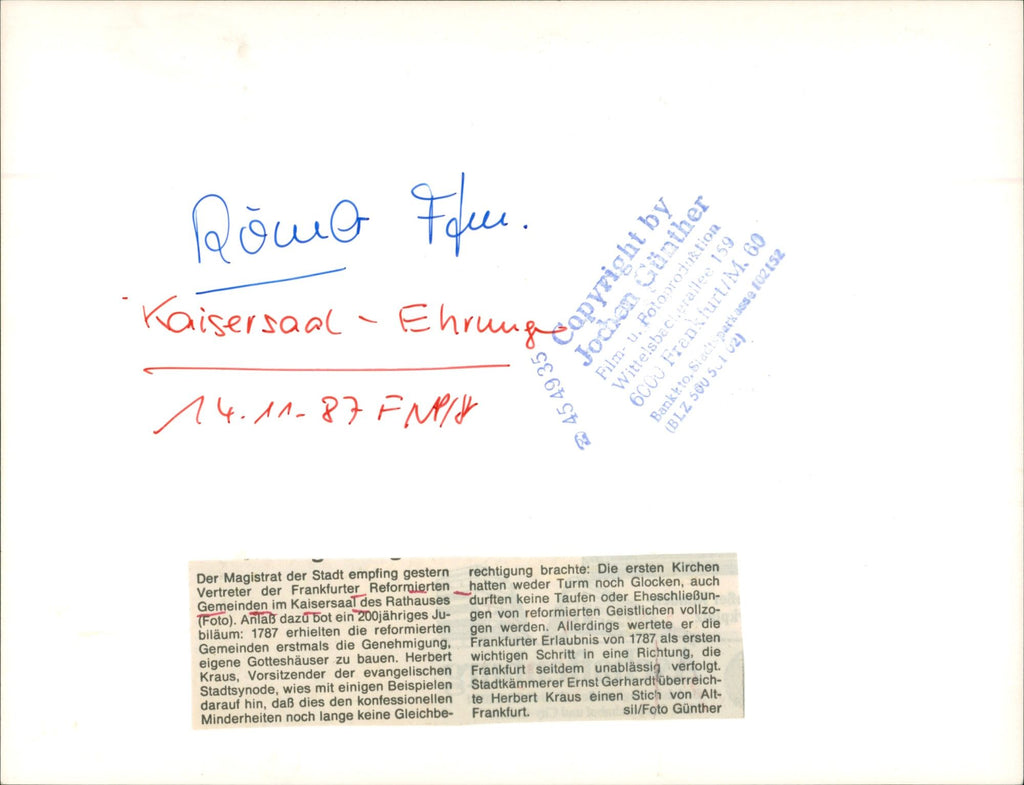 Römer Ffm.
Kaisersaal - Ehrung
14.11.87 FNP/
Copyright by
Jochen Günther
Film- u. Fotoproduktion
Wittelsbacherallee 159
6000 Frankfurt/M. 60
Bankkto. Stadtsparkasse 102152
(BLZ 500 501 02)
☎ 45 49 35
Der Magistrat der Stadt empfing gestern
Vertreter der Frankfurter Reformierten
Gemeinden im Kaisersaal des Rathauses
(Foto). Anlaß dazu bot ein 200jähriges Ju-
biläum: 1787 erhielten die reformierten
Gemeinden erstmals die Genehmigung,
eigene Gotteshäuser zu bauen. Herbert
Kraus, Vorsitzender der evangelischen
Stadtsynode, wies mit einigen Beispielen
darauf hin, daß dies den konfessionellen
Minderheiten noch lange keine Gleichbe-
rechtigung brachte: Die ersten Kirchen
hatten weder Turm noch Glocken, auch
durften keine Taufen oder Eheschließun-
gen von reformierten Geistlichen vollzo-
gen werden. Allerdings wertete er die
Frankfurter Erlaubnis von 1787 als ersten
wichtigen Schritt in eine Richtung, die
Frankfurt seitdem unablässig verfolgt.
Stadtkämmerer Ernst Gerhardt überreich-
te Herbert Kraus einen Stich von Alt-
Frankfurt. sil/Foto Günther